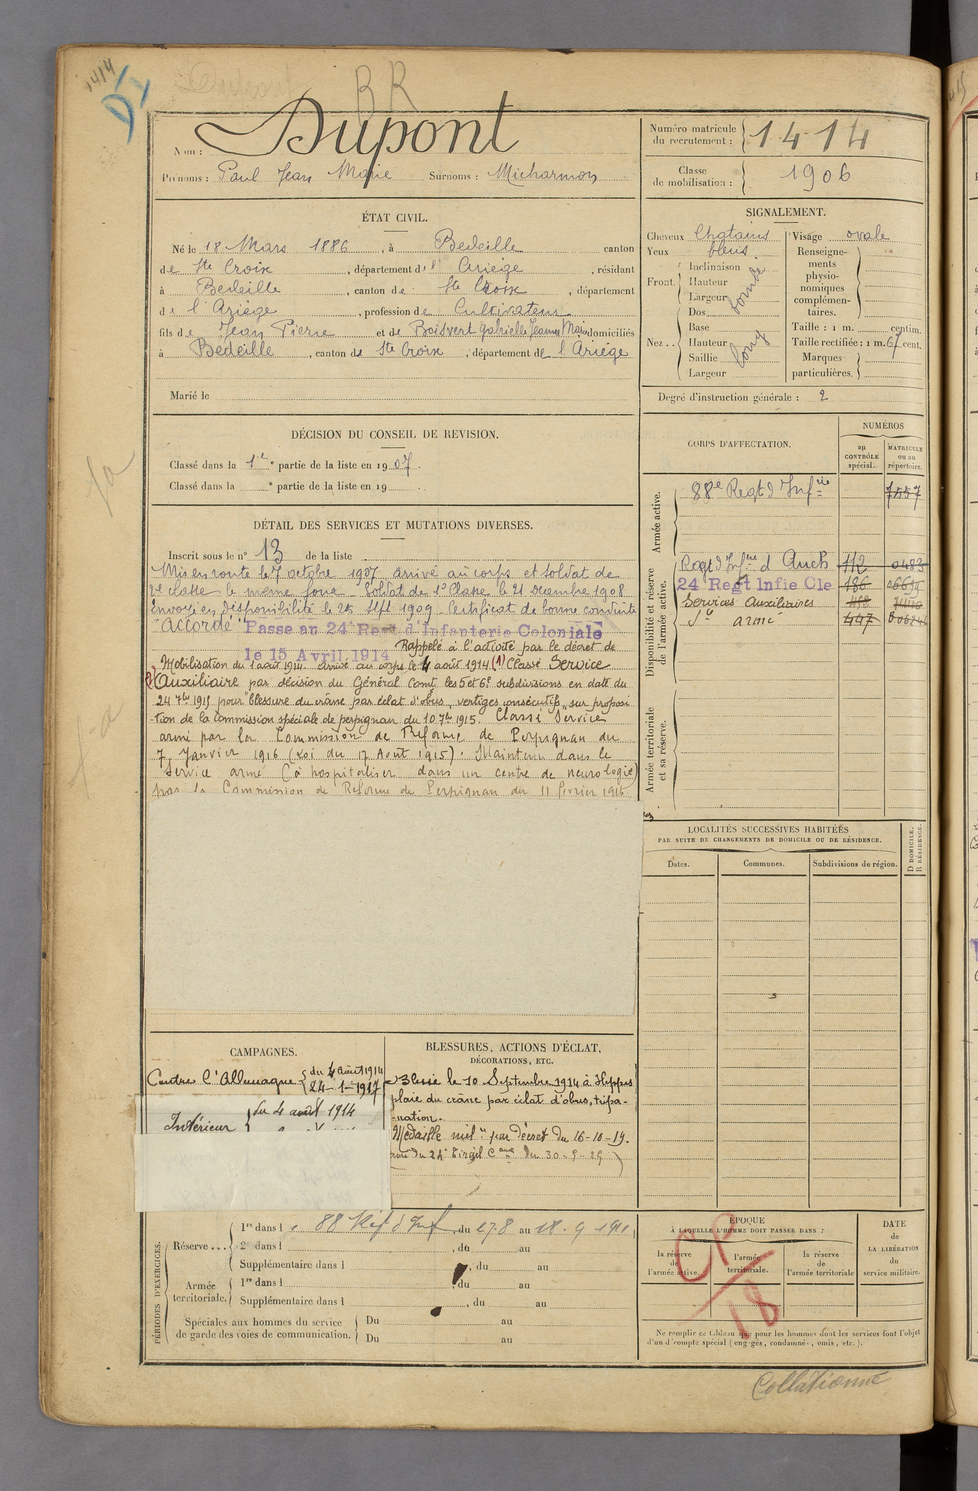 1414
RR
Nom : Dupont
Prénoms : Paul Jean Marie Surnoms : Micharmon
Numéro matricule du recrutement : 1414
Classe de mobilisation : 1906
ÉTAT CIVIL.
Né le 18 Mars 1886, à Bedeille canton
de Ste Croix, département de l' Ariège, résidant
à Bedeille, canton de Ste Croix, département
de l'Ariège, profession de Cultivateur
fils de Jean Pierre et de Boisvert Gabrielle Jeanne Marie domiciliés
à Bedeille, canton de Ste Croix, département de l'Ariège
Marié le
SIGNALEMENT.
Cheveux Chatains
Yeux bleus.
Front. Inclinaison
Hauteur
Largeur
Nez . . Dos
Base
Hauteur
Saillie
Largeur
long
Visage ovale
Renseigne-
ments
physio-
nomiques
complémen-
taires.
Taille : 1 m. centim.
Taille rectifiée : 1 m. 67 cent.
Marques
particulières.
Degré d'instruction générale : 2
DÉCISION DU CONSEIL DE REVISION.
Classé dans la 1re partie de la liste en 1907.
Classé dans la e partie de la liste en 19
DÉTAIL DES SERVICES ET MUTATIONS DIVERSES.
Inscrit sous le n° 13 de la liste
Mis en route le 7 octobre 1907 arrivé au corps et soldat de
2e classe le même jour. Soldat de 1e Classe le 21 decembre 1908
Envoyé en disponibilité le 25 Sept 1909. Certificat de bonne conduite
"Accordé" Passe au 24e Regt d'Infanterie Coloniale
le 15 Avril 1914 Rappelé à l'activité par le décret de
Mobilisation du 1 août 1914. Arrivé au corps le 4 août 1914 (1) Classé Service
Auxiliaire par décision du Général Comt les 5 et 6e subdivisions en date du
24 7bre 1915 pour "blessure du crâne par éclat d'obus, vertiges consécutifs" sur proposi
-tion de la Commission spéciale de perpignan du 10 7bre 1915. Classé Service
armé par la Commission de Réforme de Perpignan du
7 Janvier 1916 (Loi du 17 Août 1915). Maintenu dans le
Service armé (à hospitaliser dans un centre de neurologie)
par la Commission de Réforme de Perpignan du 11 février 1916
CORPS D'AFFECTATION.
NUMÉROS
au CONTRÔLE spécial.
MATRICULE ou au répertoire.
Armée active.
88e Regt d'Infie 7557
Disponibilité et réserve de l'armée active.
Regt d'Infrie d'Auch 112 0483
24 Regt Infie Cle 186
Services Auxiliaires
Sce armé
Armée territoriale et sa réserve.
LOCALITÉS SUCCESSIVES HABITÉES
PAR SUITE DE CHANGEMENTS DE DOMICILE OU DE RÉSIDENCE.
Dates. Communes. Subdivisions de région. D DOMICILE. R RÉSIDENCE.
CAMPAGNES.
Contre l'Allemagne du 4 Août 1914
24-1-1917
Intérieur du 4 août 1914
BLESSURES, ACTIONS D'ÉCLAT,
DÉCORATIONS, ETC.
Blessé le 10 Septembre 1914 à
plaie du crâne par éclat d'obus, trépa-
-nation.
Médaille milre par décret du 16-10-19.
PÉRIODES D'EXERCICES.
Réserve . . . 1re dans l e 88 Regt d'Inf, du 27.8 au 18.9 1911
2e dans l , du au
Supplémentaire dans l , du au
Armée territoriale. 1re dans l , du au
Supplémentaire dans l , du au
Spéciales aux hommes du service
de garde des voies de communication.
Du au
Du au
ÉPOQUE
À LAQUELLE L'HOMME DOIT PASSER DANS :
la réserve de l'armée active.
l'armée territoriale.
la réserve de l'armée territoriale
DATE
de
LA LIBÉRATION
du
service militaire.
CP
18
Ne remplir ce tableau que pour les hommes dont les services font l'objet
d'un décompte spécial (engagés, condamnés, omis, etc.).
Collationné